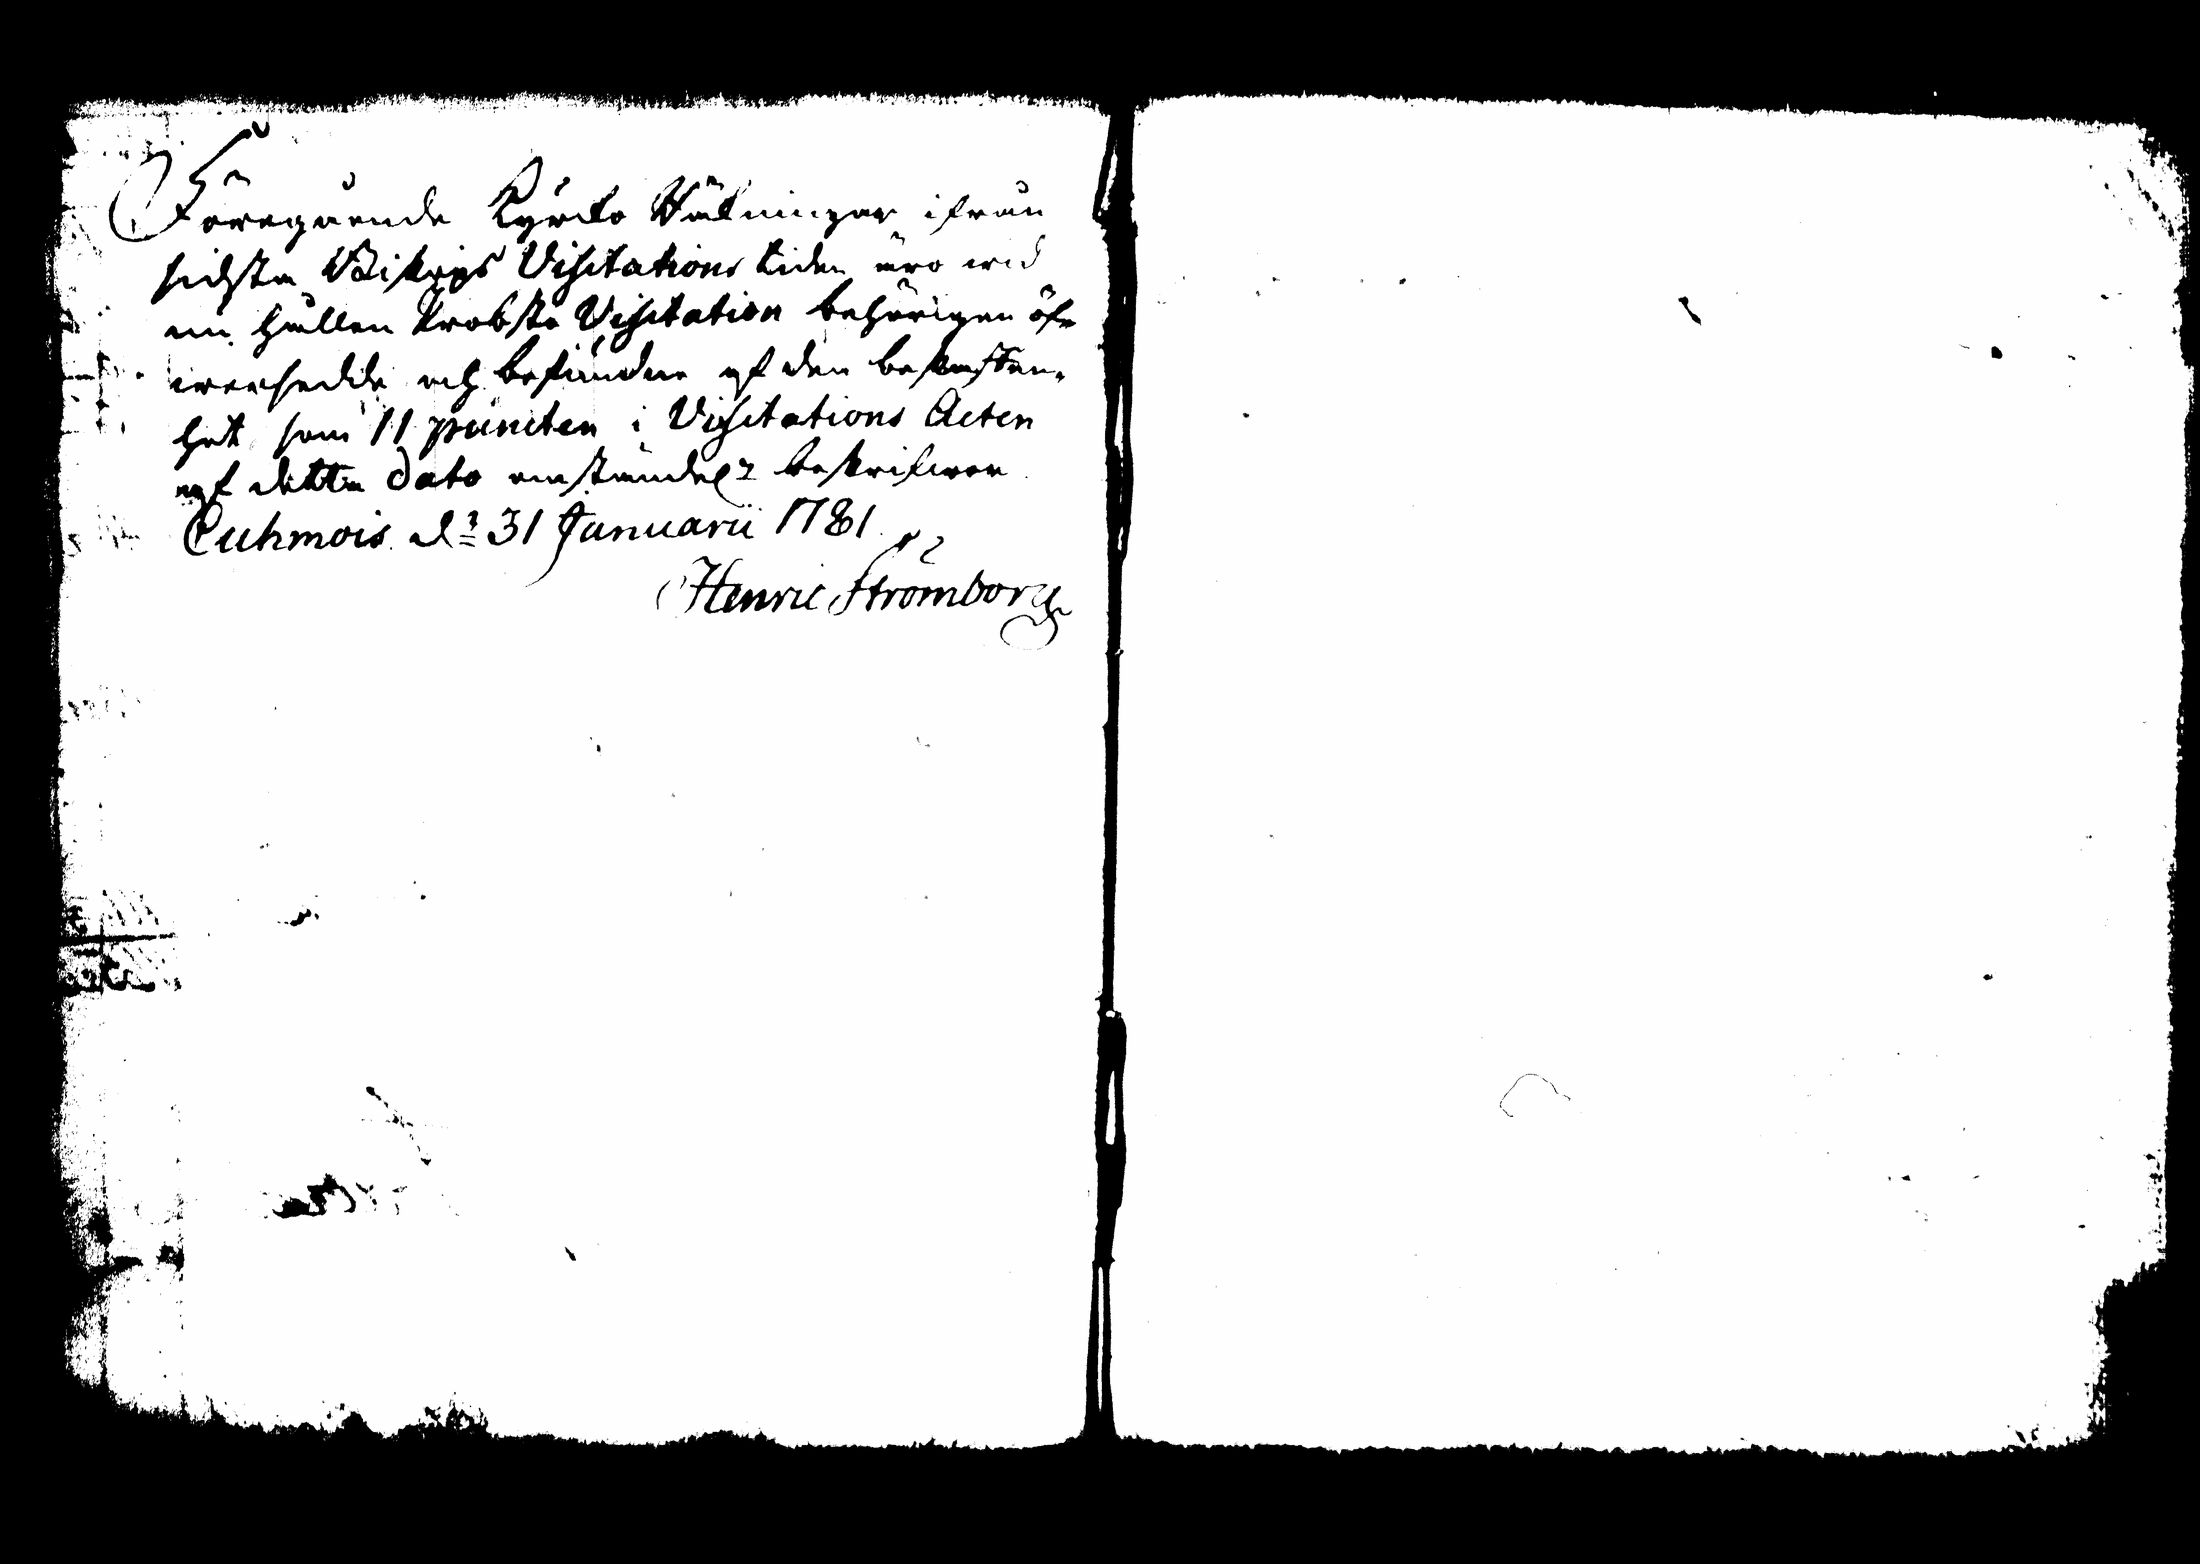 Föregående Kyrcko Räkningar ifrån
sidsta Biskops Visitations tiden äro wid
nu hållen Probste Visitation behörigen öf-
wersedde och befundne af den beskaffen-
het som 11 puncten i Visitations Acten
af detta dato omständel: beskrifwer
Cuhmois d: 31 Januarii 1781.
Henric Strömborg